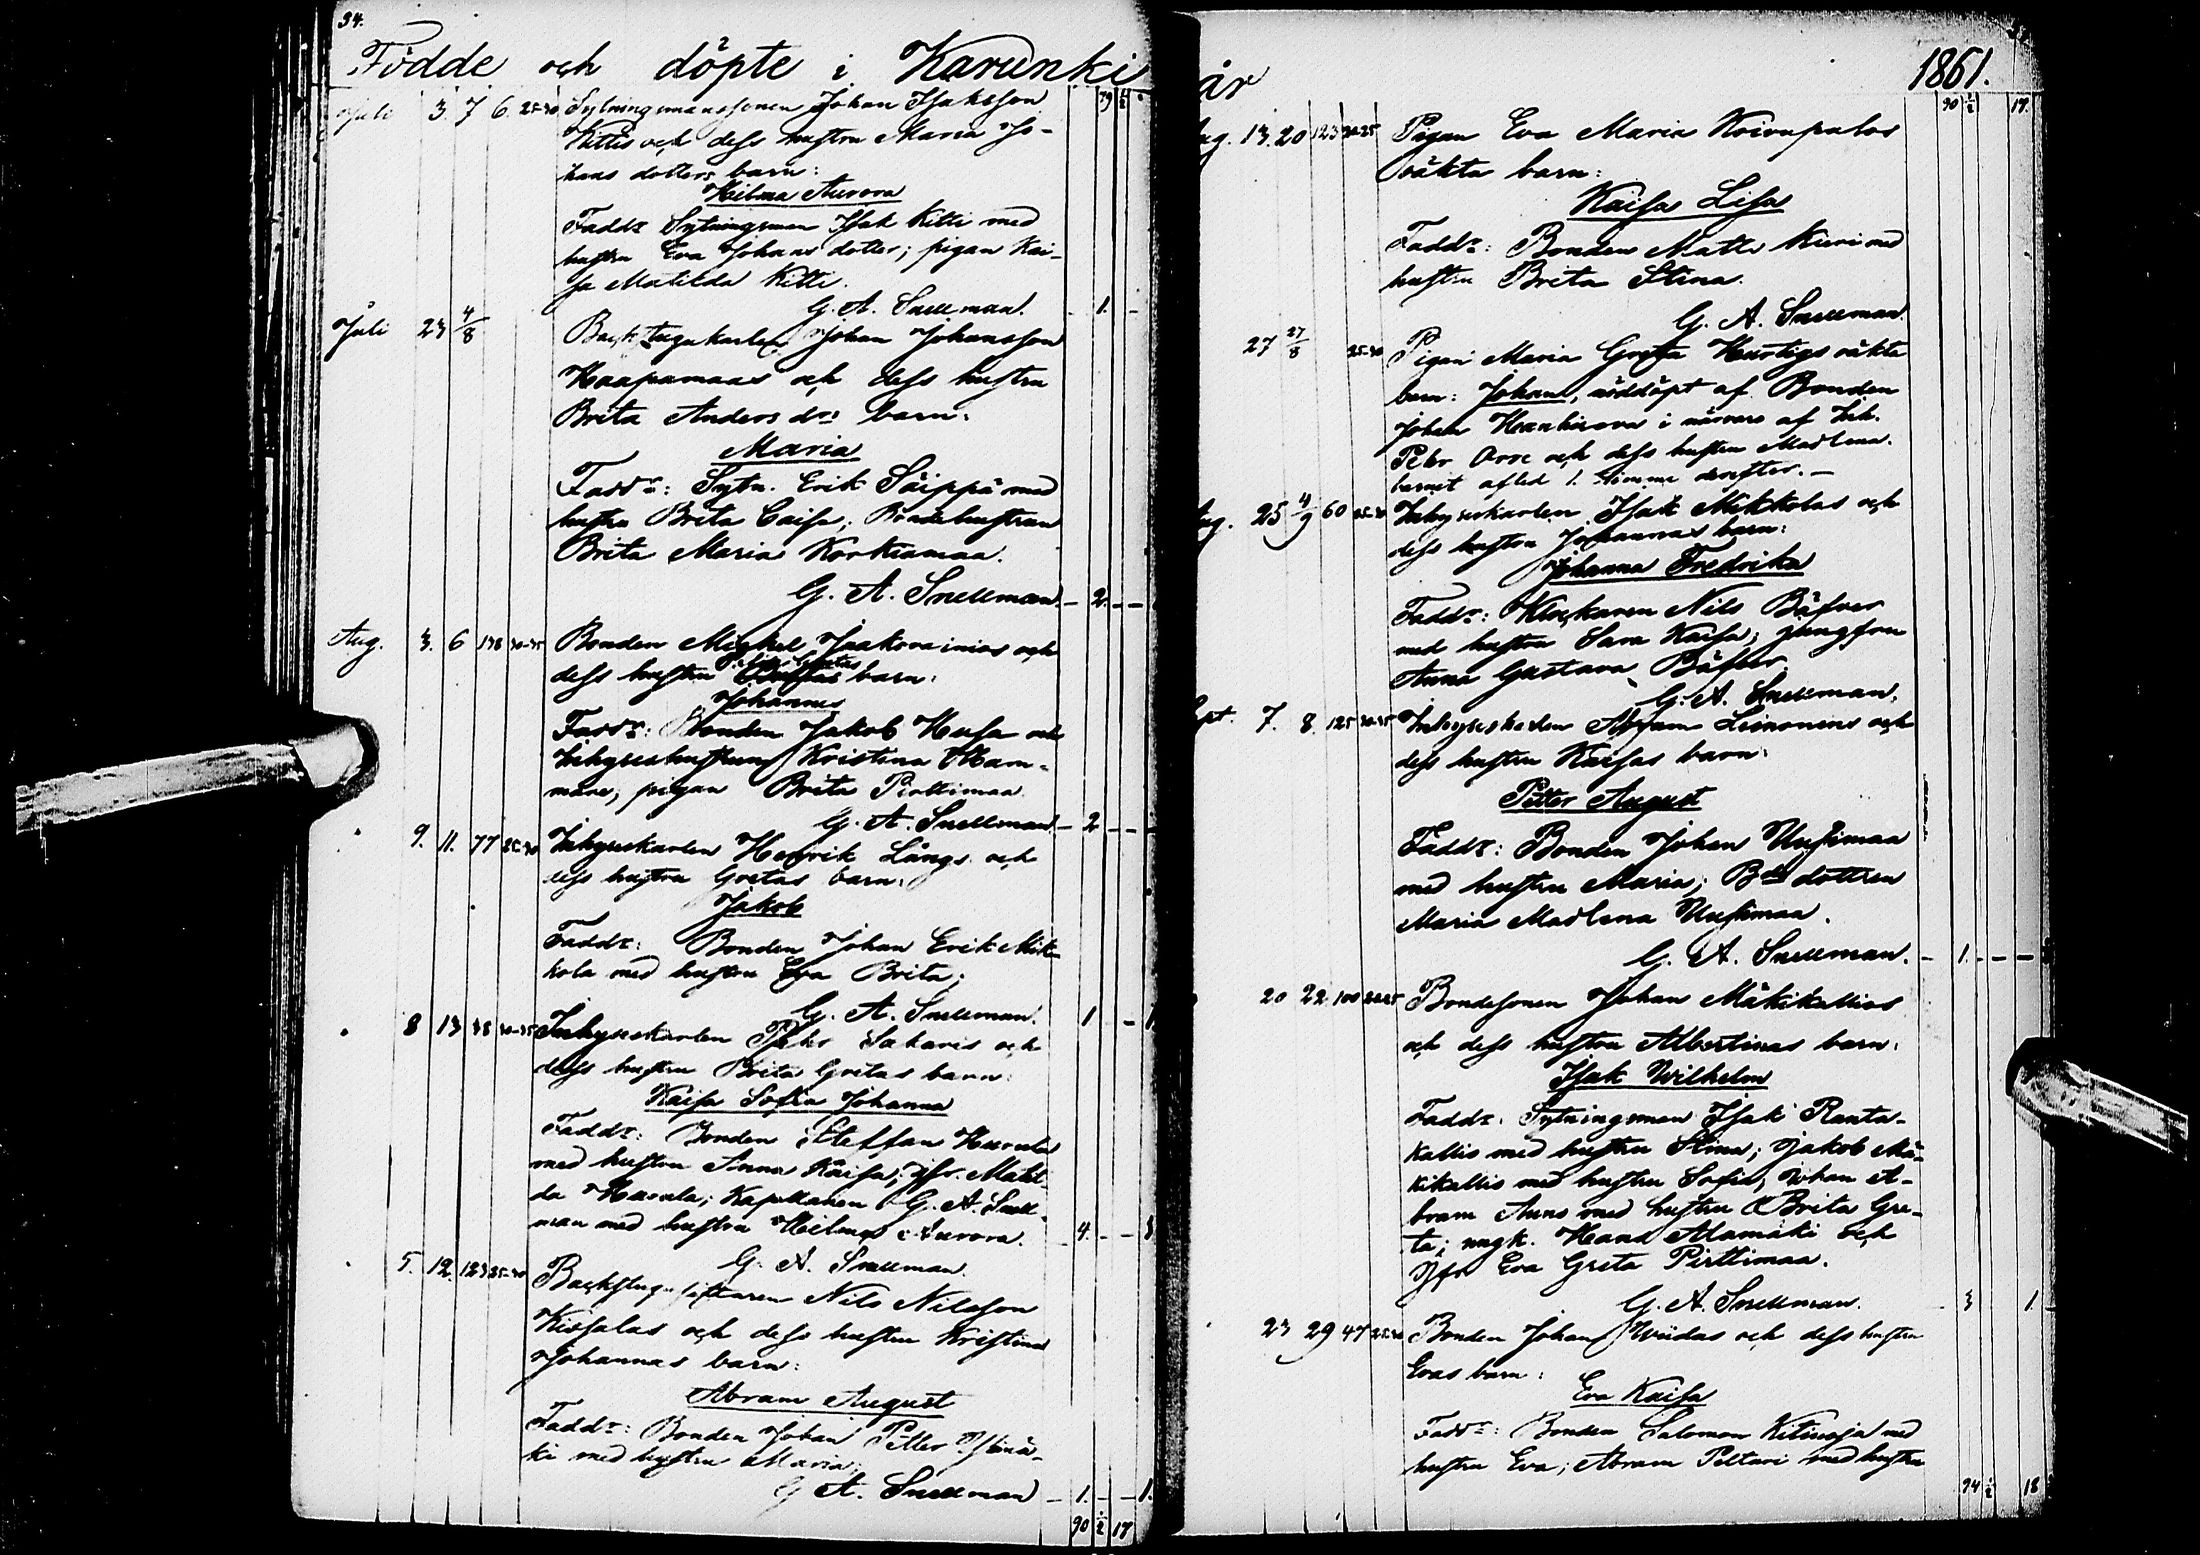 34.
Födde och döpte i Karunki
Juli 3. 7 6. 25-30 Sytningsmanssonen Johan Isaksson
Kittis och dess hustru Maria Jo-
hans dotters barn:
Hilma Aurora
Faddr Sytningsman Isak Kitti med
hustru Eva Johans dotter; pigan Kai-
sa Matilda Kitti.
G. A. Snellman. 1.
Juli 23 4/8 Backstugukarlen Johan Johansson
Haapamaas och dess hustru
Brita Anders drs barn:
Maria
Faddr: Sytn. Erik Säippä med
hustru Brita Caisa; Bondehustrun
Brita Maria Korkiamaa.
G. A. Snellman. 2.
Aug. 3. 6 138 30-35 Bonden Michel Jaakovainios och
dess hustru Gretas barn:
Johannes
Faddr: Bonden Jakob Husa och
Inhyseshustrun Kristina
pigan Brita Pirttimaa.
G. A. Snellman 2
9. 11. 77 25-30 Inhyseskarlen Henrik Långs och
dess hustru Gretas barn:
Jakob
Faddr: Bonden Johan Erik Mik-
kola med hustru Eva Brita;
G. A. Snellman. 1
8 13 38 30-35 Inhyseskarlen Pehr Sakaris och
dess hustru Brita Gretas barn:
Kaisa Sofia Johanna
Faddr: Bonden Steffan Hurula
med hustru Anna Kaisa; Jfr. Matil-
da Hurula; Kapellanen G. A. Snell-
man med hustru Hilma Aurora. 4.
G. A. Snellman.
5. 12. 123 25-30 Backstugusittaren Nils Nilsson
Kissalas och dess hustru Kristina
Johannas barn:
Abram August
Faddr: Bonden Johan Petter
ki med hustru Maria;
G A. Snellman 1. 1.
90 1/2 17
år 1861.
90 1/2 17.
Aug. 13. 20 123 20-25 Pigan Eva Maria Koivupalos
oäkta barn:
Kaisa Lisa
Faddr: Bonden Matts Kieri med
hustru Brita Stina.
G. A. Snellman.
27 27/8 25-30 Pigan Maria Greta Hurtigs oäkta
barn: Johan, nöddöpt af Bonden
Johan i närvaro af Inh.
Petter Orre och dess hustru Madlena.
barnet afled 1. timme derefter. —
Aug. 25 4/9 60 25-30 Inhyseskarlen Isak Mikkolas och
dess hustru Johannas barn:
Johanna Fredrika
Faddr: Klockaren Nils Bäfver
med hustru Sara Kaisa; jungfru
Anna Gustava Bäfver.
G. A. Snellman.
Sept. 7. 8. 125 30-35 Inhyseskarlen Abram Leinonens och
dess hustru Kaisas barn:
Petter August
Faddr: Bonden Johan Uusimaa
med hustru Maria; Bde dottren
Maria Madlena Uusimaa.
G. A. Snellman. 1.
20 22. 100 20-25 Bondesonen Johan Mäkikallios
och dess hustru Albertinas barn:
Isak Wilhelm
Faddr: Sytningsman Isak Ranta-
kallis med hustru Stina; Jakob Mä-
kikallis med hustru Sofia; Johan A-
bram Aunes med hustru Brita Gre-
ta; ungk. Hans Alamäki och
Jfr Eva Greta Pirttimaa.
G. A. Snellman. 3 1.
23 29 47 25-30 Bonden Johan Wiidas och dess hustru
Evas barn:
Eva Kaisa
Faddr: Bonden Salomon Kitinoja med
hustru Eva; Abram Peltari med hustru
94 1/2 18